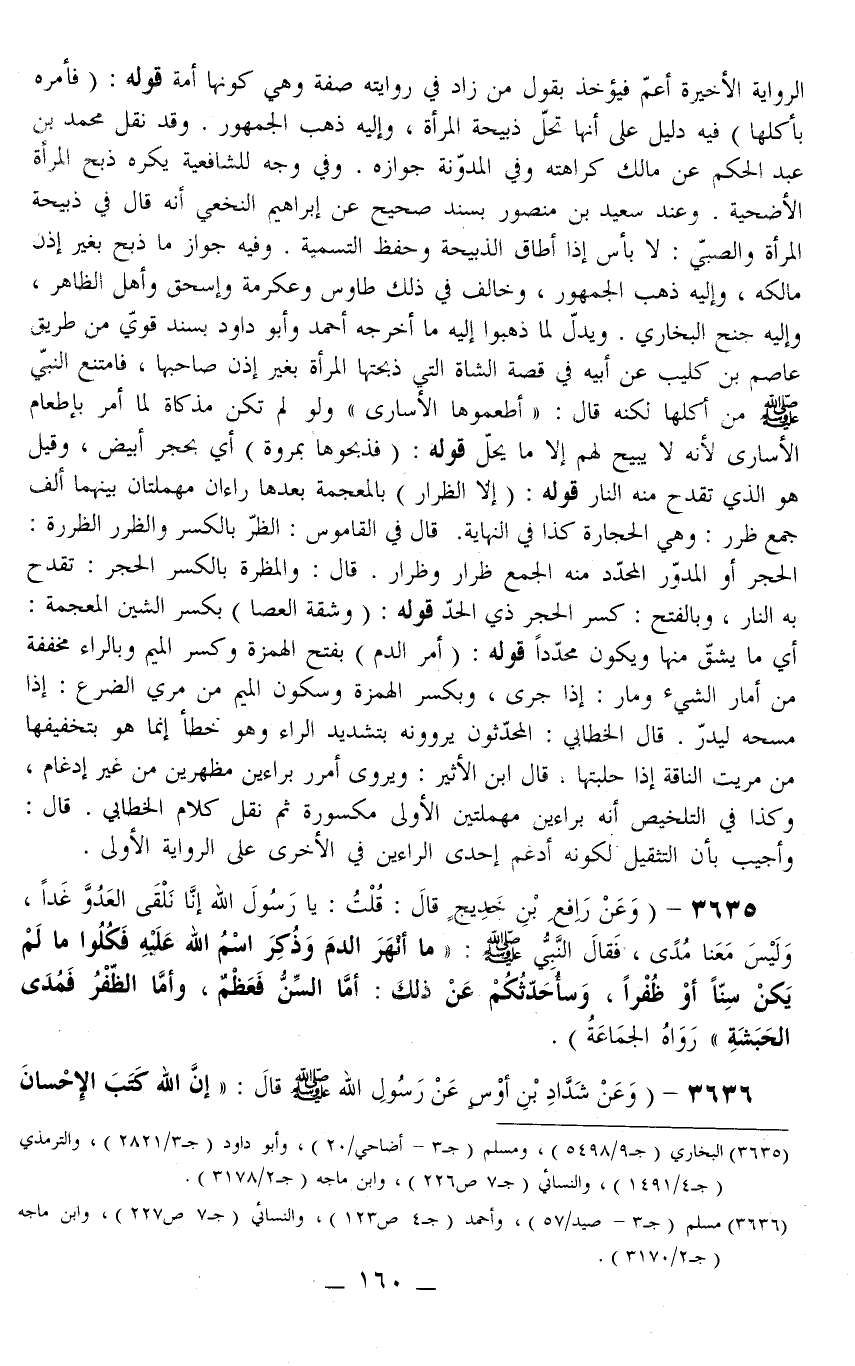 الرواية الأخيرة أعمّ فيؤخذ بقول من زاد في روايته صفة وهي كونها أمة قوله : ( فأمره
بأكلها ) فيه دليل على أنها تحلّ ذبيحة المرأة ، وإليه ذهب الجمهور . وقد نقل محمد بن
عبد الحكم عن مالك كراهته وفي المدوّنة جوازه . وفي وجه للشافعية يكره ذبح المرأة
الأضحية . وعند سعيد بن منصور بسند صحيح عن إبراهيم النخعي أنه قال في ذبيحة
المرأة والصبيّ : لا بأس إذا أطاق الذبيحة وحفظ التسمية . وفيه جواز ما ذبح بغير إذن
مالكه ، وإليه ذهب الجمهور ، وخالف في ذلك طاوس وعكرمة وإسحق وأهل الظاهر ،
وإليه جنح البخاري . ويدلّ لما ذهبوا إليه ما أخرجه أحمد وأبو داود بسند قويّ من طريق
عاصم بن كليب عن أبيه في قصة الشاة التي ذبحتها المرأة بغير إذن صاحبها ، فامتنع النبيّ
ﷺ من أكلها لكنه قال : « أطعموها الأسارى » ولو لم تكن مذكاة لما أمر بإطعام
الأسارى لأنه لا يبيح لهم إلا ما يحلّ قوله : ( فذبحوها بمروة ) أي بحجر أبيض ، وقيل
هو الذي تقدح منه النار قوله : ( إلا الظرار ) بالمعجمة بعدها راءان مهملتان بينهما ألف
جمع ظرر : وهي الحجارة كذا في النهاية. قال في القاموس : الظرّ بالكسر والظرر الظررة :
الحجر أو المدوّر المحدّد منه الجمع ظرار وظرار . قال : والمظرة بالكسر الحجر : تقدح
به النار ، وبالفتح : كسر الحجر ذي الحدّ قوله : ( وشقة العصا ) بكسر الشين المعجمة :
أي ما يشقّ منها ويكون محدّداً قوله : ( أمر الدم ) بفتح الهمزة وكسر الميم وبالراء مخففة
من أمار الشيء ومار : إذا جرى ، وبكسر الهمزة وسكون الميم من مري الضرع : إذا
مسحه ليدرّ . قال الخطابي : المحدّثون يروونه بتشديد الراء وهو خطأ إنما هو بتخفيفها
من مريت الناقة إذا حلبتها . قال ابن الأثير : ويروى أمرر براءين مظهرين من غير إدغام ،
وكذا في التلخيص أنه براءين مهملتين الأولى مكسورة ثم نقل كلام الخطابي . قال :
وأجيب بأن التثقيل لكونه أدغم إحدى الراءين في الأخرى على الرواية الأولى .
٣٦٣٥ – ( وَعَنْ رَافِعِ بْنِ خَدِيجٍ قالَ : قُلْتُ : يا رَسُولَ الله إنَّا نَلْقَى العَدُوَّ غَداً ،
وَلَيْسَ مَعَنا مُدًى ، فَقالَ النَّبِيُّ ﷺ : « ما أَنْهَرَ الدمَ وَذُكِرَ اسْمُ الله عَلَيْهِ فَكُلُوا ما لَمْ
يَكنْ سِنّاً أوْ ظُفْراً ، وَسأُحَدّثُكُمْ عَنْ ذلكَ : أمَّا السِّنُّ فَعَظْمٌ ، وأمَّا الظُّفْرُ فَمُدَى
الحَبَشَةِ » رَوَاهُ الجَماعَةُ ) .
٣٦٣٦ – ( وَعَنْ شَدَّادِ بْنِ أوْسٍ عَنْ رَسُولِ الله ﷺ قالَ : « إنَّ الله كَتَبَ الإحْسانَ
(٣٦٣٥) البخاري ( جـ٥٤٩٨/٩ ) ، ومسلم ( جـ٣ – أضاحي/٢٠ ) ، وأبو داود ( جـ٢٨٢١/٣ ) ، والترمذي
( جـ١٤٩١/٤ ) ، والنسائي ( جـ٧ ص٢٢٦ ) ، وابن ماجه ( جـ٣١٧٨/٢ ) .
(٣٦٣٦) مسلم ( جـ٣ – صيد/٥٧ ) ، وأحمد ( جـ٤ ص١٢٣ ) ، والنسائي ( جـ٧ ص٢٢٧ ) ، وابن ماجه
( جـ٣١٧٠/٢ ) .
– ١٦٠ –